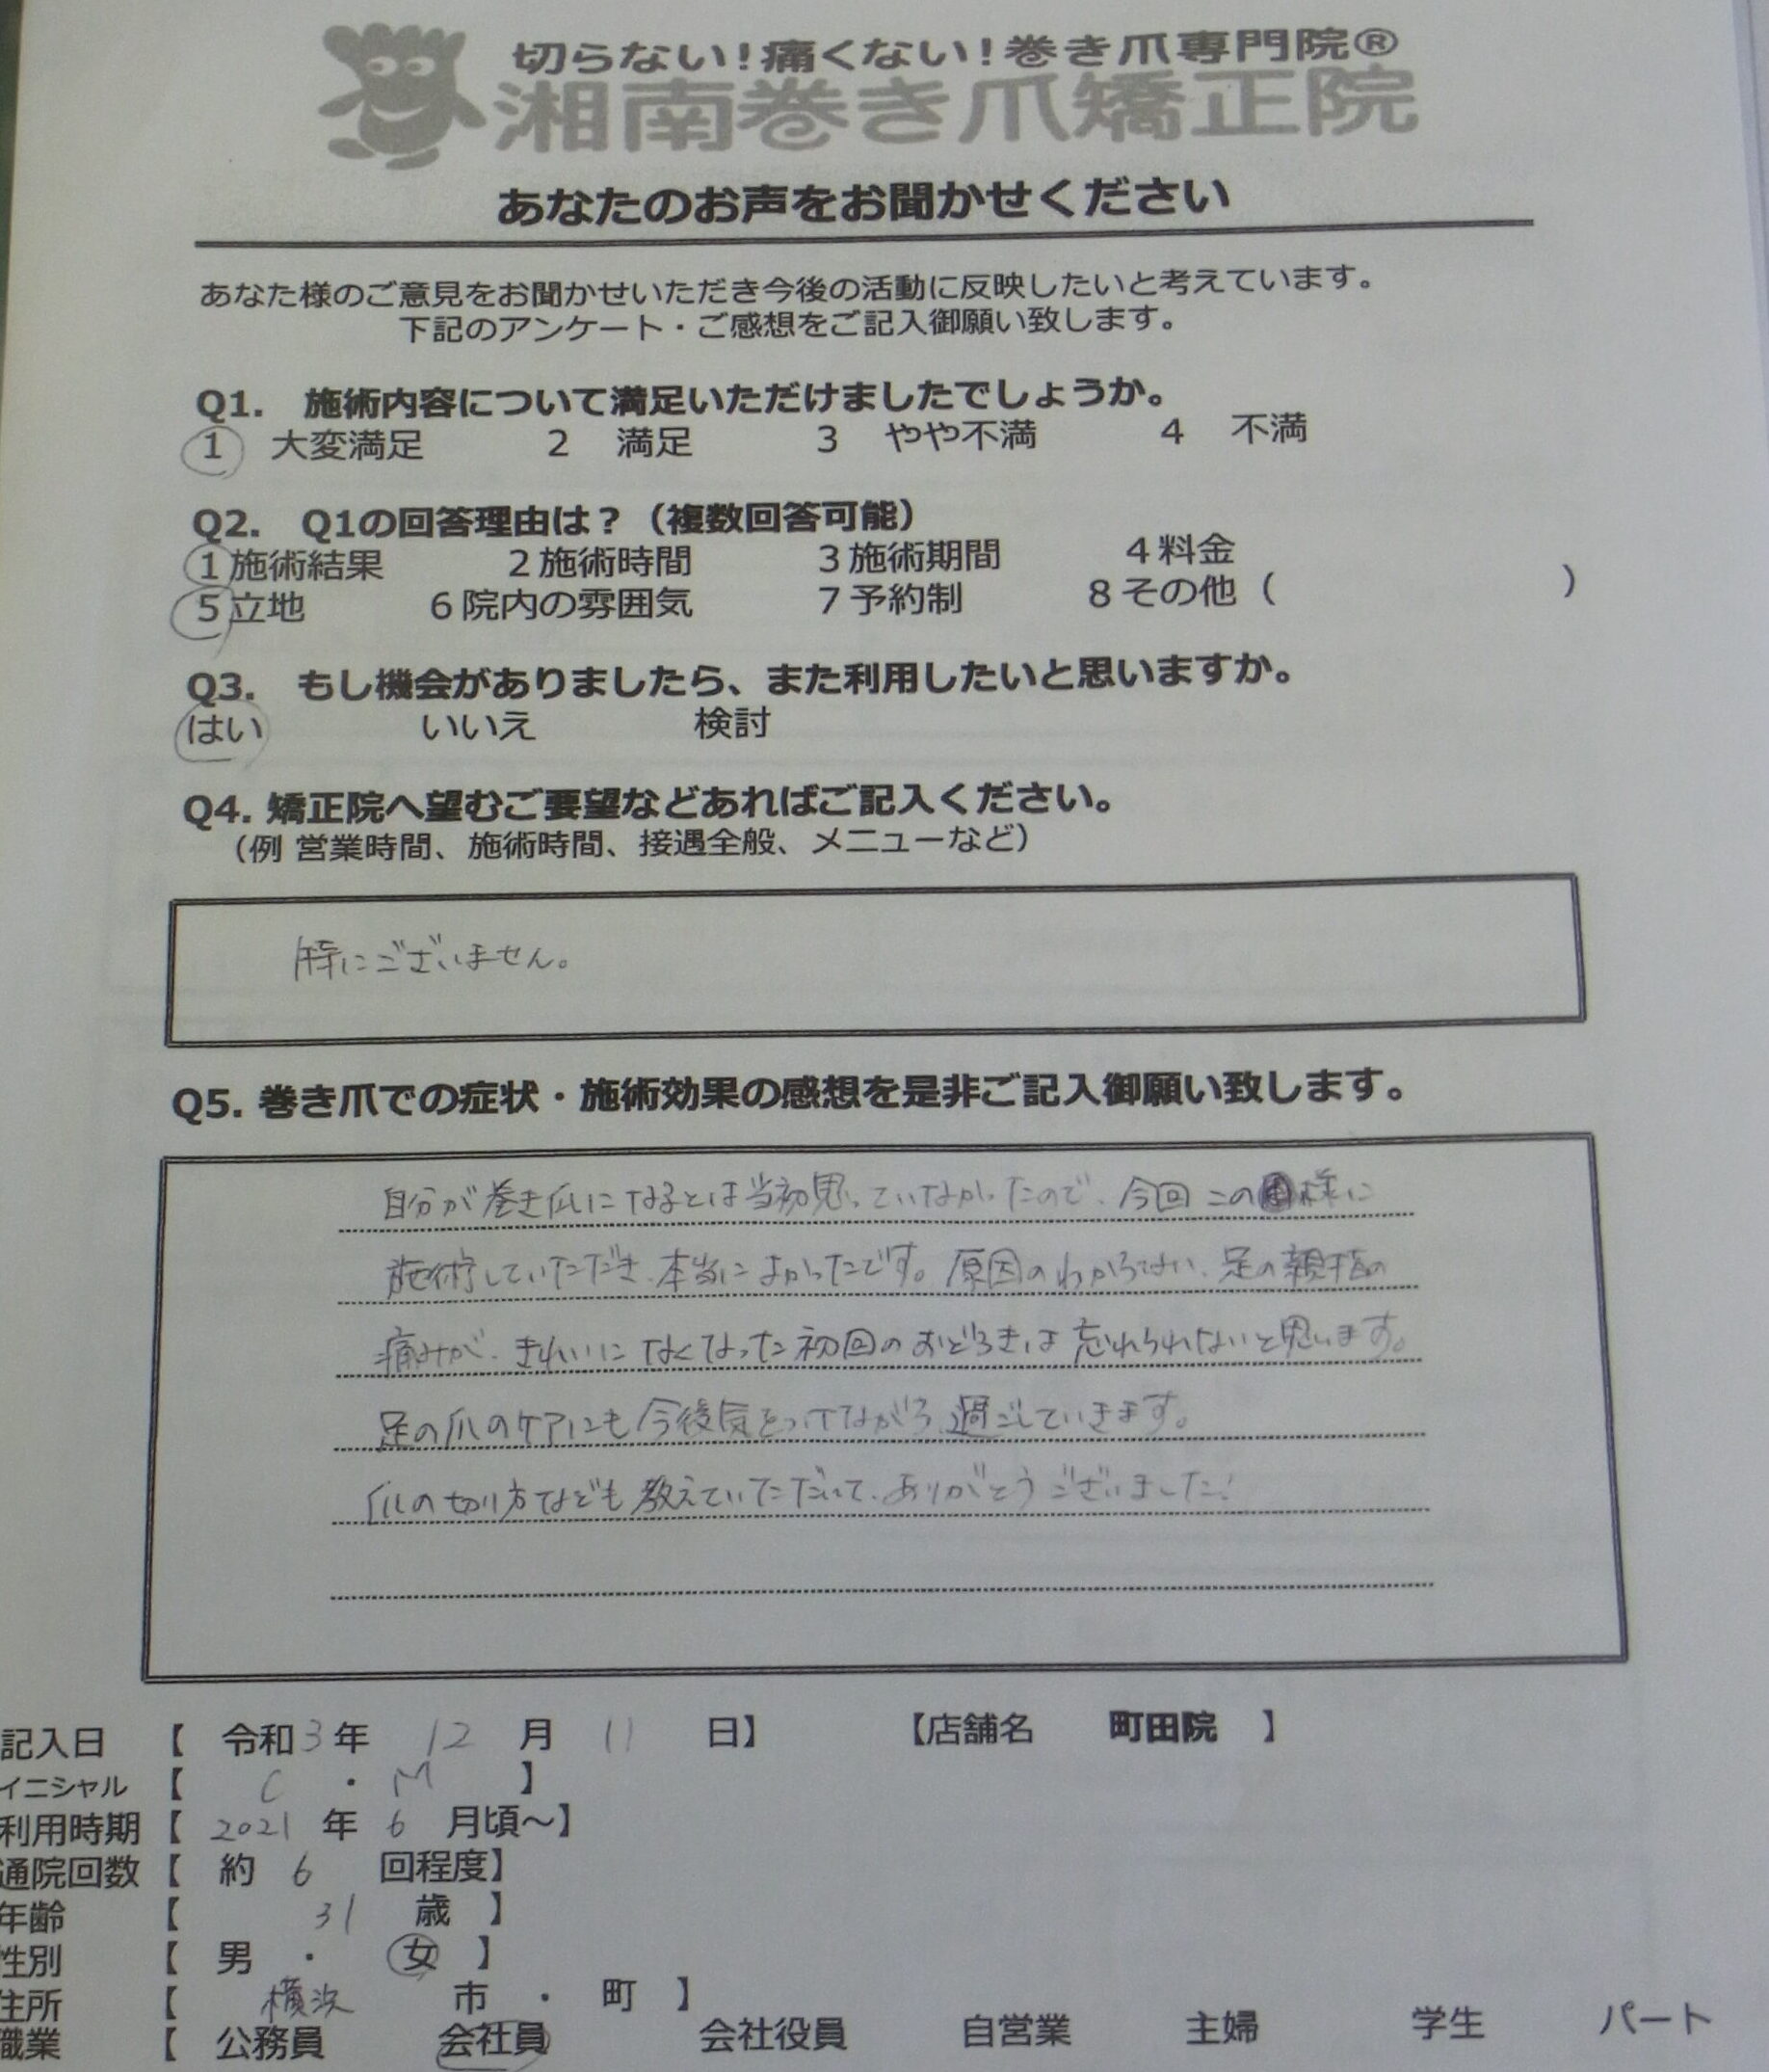 切らない！痛くない！巻き爪専門院®
湘南巻き爪矯正院
あなたのお声をお聞かせください
あなた様のご意見をお聞かせいただき今後の活動に反映したいと考えています。
下記のアンケート・ご感想をご記入御願い致します。
Q1. 施術内容について満足いただけましたでしょうか。
1 大変満足 2 満足 3 やや不満 4 不満
Q2. Q1の回答理由は？（複数回答可能）
1 施術結果 2 施術時間 3 施術期間 4 料金
5 立地 6 院内の雰囲気 7 予約制 8 その他（ ）
Q3. もし機会がありましたら、また利用したいと思いますか。
はい いいえ 検討
Q4. 矯正院へ望むご要望などあればご記入ください。
（例 営業時間、施術時間、接遇全般、メニューなど）
特にございません。
Q5. 巻き爪での症状・施術効果の感想を是非ご記入御願い致します。
自分が巻き爪になるとは当初思っていなかったので、今回この様に
施術していただき、本当によかったです。原因のわからない、足の親指の
痛みが、きれいになくなった初回のおどろきは忘れられないと思います。
足の爪のケアにも今後気をつけながら、過ごしていきます。
爪の切り方なども教えていただいて、ありがとうございました！
記入日 【 令和3年 12 月 11 日】 【店舗名 町田院 】
イニシャル 【 C ・ M 】
利用時期 【 2021 年 6 月頃～】
通院回数 【 約 6 回程度】
年齢 【 31 歳 】
性別 【 男 ・ 女 】
住所 【 横浜 市 ・ 町 】
職業 【 公務員 会社員 会社役員 自営業 主婦 学生 パート